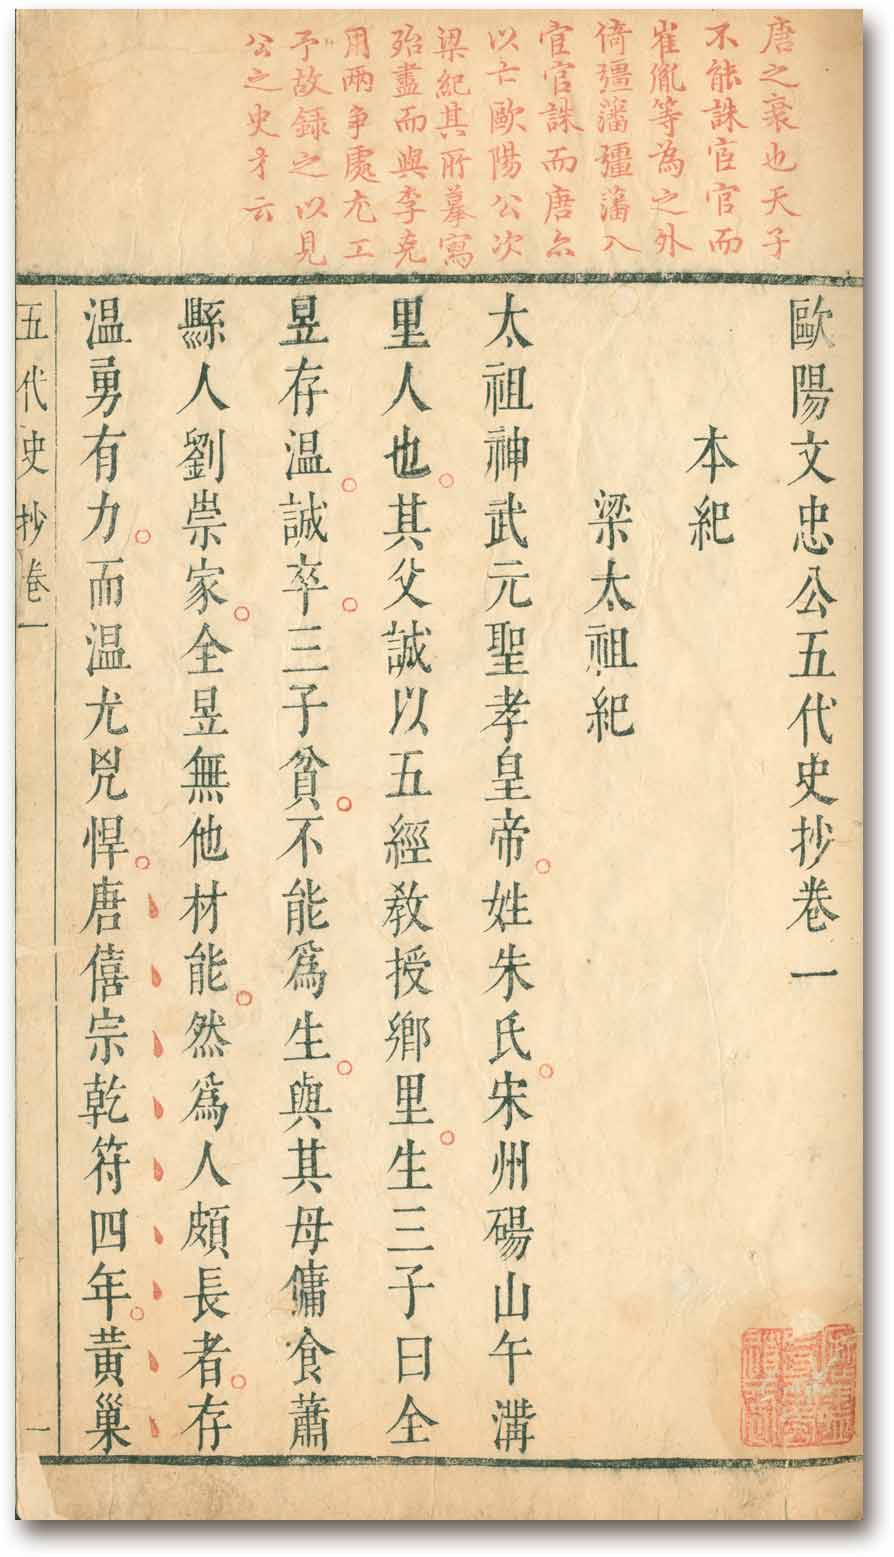 唐之衰也天子
不能誅宦官而
崔胤等為之外
倚彊藩彊藩入
宦官誅而唐亦
以亡歐陽公次
梁紀其所摹寫
殆盡而與李克
用兩爭處尤工
予故録之以見
公之史才云
歐陽文忠公五代史抄卷一
本紀
梁太祖紀
太祖神武元聖孝皇帝姓朱氏宋州碭山午溝
里人也其父誠以五經教授鄉里生三子曰全
昱存温誠卒三子貧不能爲生與其母傭食蕭
縣人劉崇家全昱無他材能然爲人頗長者存
温勇有力而温尤兇悍唐僖宗乾符四年黃巢
五代史抄卷一
一